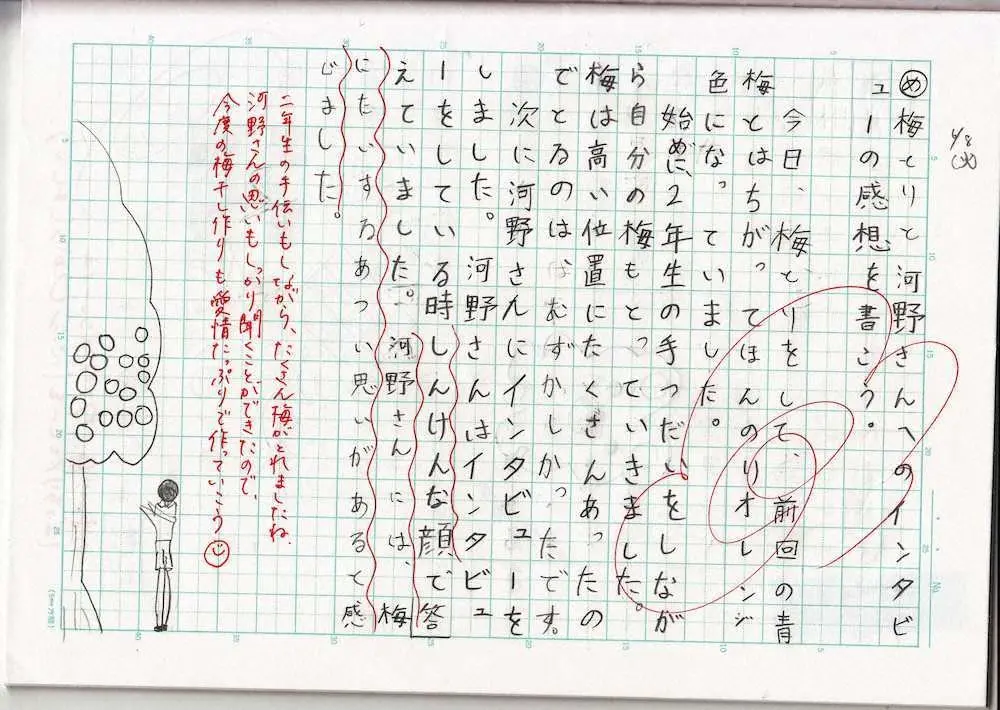 6/8
(火)
め 梅とりと河野さんへのインタビ
ューの感想を書こう。
今日、梅とりをして、前回の青
梅とはちがってほんのりオレンジ
色になっていました。
始めに、2年生の手つだいをしなが
ら自分の梅もとっていきました。
梅は高い位置にたくさんあったの
でとるのはむずかしかったです。
次に河野さんにインタビューを
しました。河野さんはインタビュ
ーをしている時しんけんな顔で答
えていました。河野さんには、梅
にたいするあつい思いがあると感
じました。
二年生の手伝いもしながら、たくさん梅がとれましたね。
河野さんの思いもしっかり聞くことができたので、
今度の梅干し作りも愛情たっぷりで作っていこう